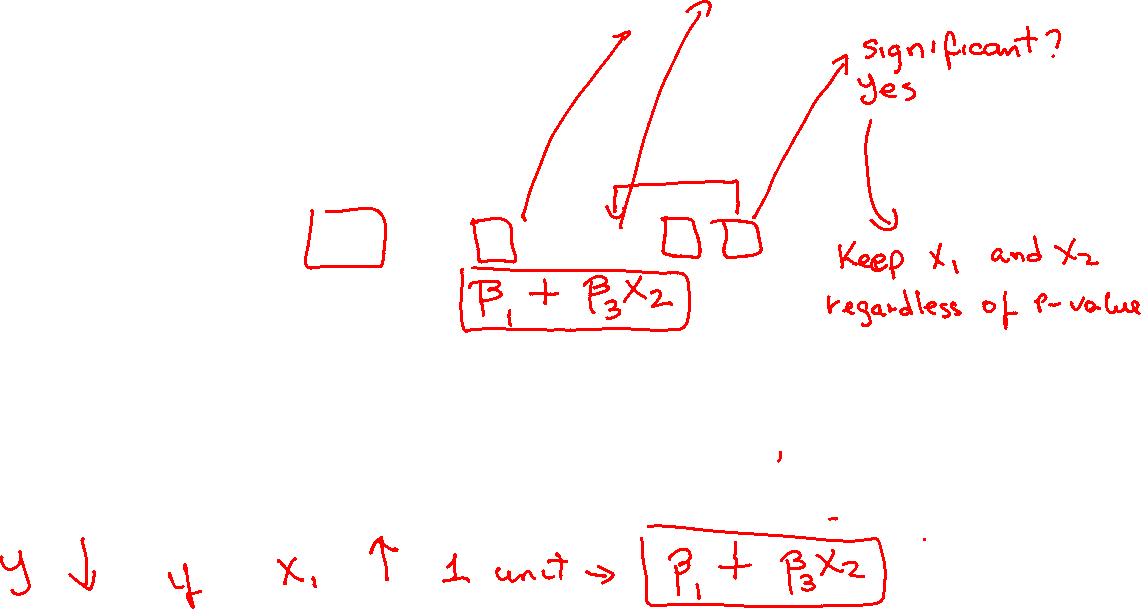 significant?
yes
Keep X₁ and X₂
regardless of P-value
β₁ + β₃X₂
y ↓ if X₁ ↑ 1 unit → β₁ + β₃X₂